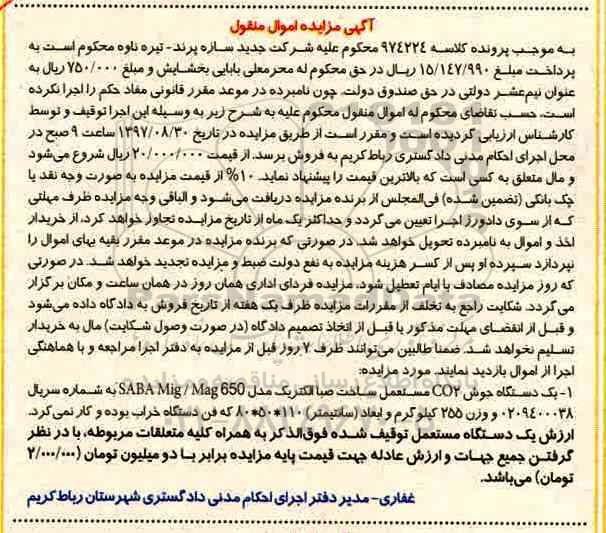 آگهی مزایده اموال منقول
به موجب پرونده کلاسه ۹۷۴۲۲۴ محکوم علیه شرکت جدید سازه پرند- تیره ناوه محکوم است به
پرداخت مبلغ ۱۵/۱۴۷/۹۹۰ ریال در حق محکوم له محرمعلی بابایی بخشایش و مبلغ ۷۵۰/۰۰۰ ریال به
عنوان نیم‌عشر دولتی در حق صندوق دولت. چون نامبرده در موعد مقرر قانونی مفاد حکم را اجرا نکرده
است، حسب تقاضای محکوم له اموال منقول محکوم علیه به شرح زیر به وسیله این اجرا توقیف و توسط
کارشناس ارزیابی گردیده است و مقرر است از طریق مزایده در تاریخ ۱۳۹۷/۰۸/۳۰ ساعت ۹ صبح در
محل اجرای احکام مدنی دادگستری رباط کریم به فروش برسد. از قیمت ۲۰/۰۰۰/۰۰۰ ریال شروع می‌شود
و مال متعلق به کسی است که بالاترین قیمت را پیشنهاد نماید. ۱۰% از قیمت مزایده به صورت وجه نقد یا
چک بانکی (تضمین شده) فی‌المجلس از برنده مزایده دریافت می‌شود و الباقی وجه مزایده ظرف مهلتی
که از سوی دادورز اجرا تعیین می گردد و حداکثر یک ماه از تاریخ مزایده تجاوز نخواهد کرد، از خریدار
اخذ و اموال به نامبرده تحویل خواهد شد. در صورتی که برنده مزایده در موعد مقرر بقیه بهای اموال را
نپردازد سپرده او پس از کسر هزینه مزایده به نفع دولت ضبط و مزایده تجدید خواهد شد. در صورتی
که روز مزایده مصادف با ایام تعطیل شود، مزایده فردای اداری همان روز در همان ساعت و مکان برگزار
می گردد. شکایت راجع به تخلف از مقررات مزایده ظرف یک هفته از تاریخ فروش به دادگاه داده می‌شود
و قبل از انقضای مهلت مذکور یا قبل از اتخاذ تصمیم دادگاه (در صورت وصول شکایت) مال به خریدار
تسلیم نخواهد شد. ضمنا طالبین می‌توانند ظرف ۷ روز قبل از مزایده به دفتر اجرا مراجعه و با هماهنگی
اجرا از اموال بازدید نمایند. مورد مزایده:
۱- یک دستگاه جوش CO۲ مستعمل ساخت صبا الکتریک مدل SABA Mig / Mag 650 به شماره سریال
۰۲۰۹۴۰۰۳۸ و وزن ۲۵۵ کیلو گرم و ابعاد (سانتیمتر) ۱۱۰*۵۰*۸۰ که فن دستگاه خراب بوده و کار نمی‌کرد.
ارزش یک دستگاه مستعمل توقیف شده فوق‌الذکر به همراه کلیه متعلقات مربوطه، با در نظر
گرفتن جمیع جهات و ارزش عادله جهت قیمت پایه مزایده برابر با دو میلیون تومان (۲/۰۰۰/۰۰۰
تومان) می‌باشد.
غفاری- مدیر دفتر اجرای احکام مدنی دادگستری شهرستان رباط کریم